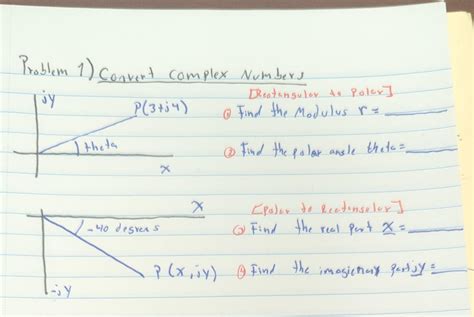 Problem 1) Convert Complex Numbers
[Rectangular to Polar]
jy
P(3+j4)
① Find the Modulus r =
theta
② Find the polar angle theta =
x
x
[Polar to Rectangular]
-40 degrees
③ Find the real part x =
P(x,jy)
④ Find the imaginary part jy =
-jy